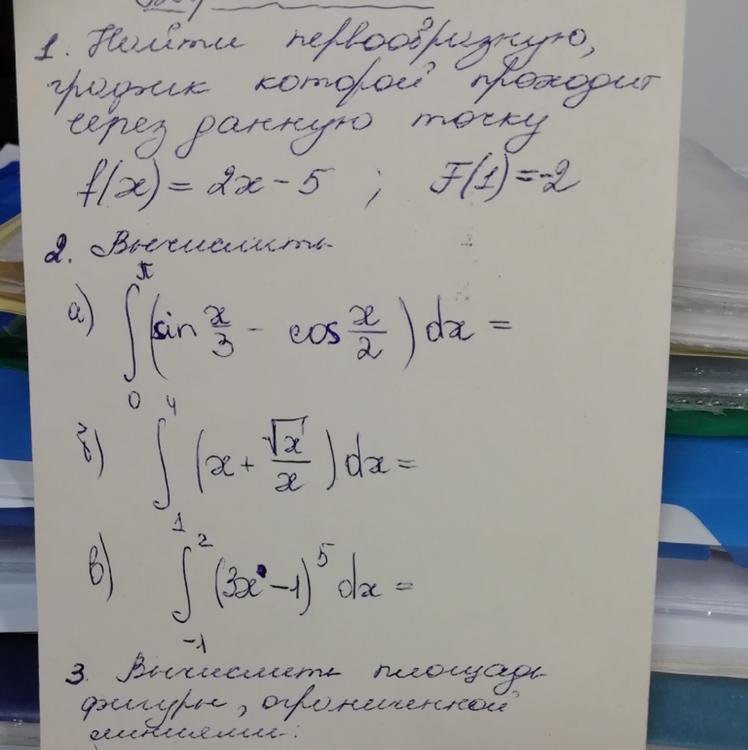 1. Найти первообразную,
график которой проходит
через данную точку
f(x) = 2x - 5 ; F(1) = -2
2. Вычислить
а) ∫₀^π (sin x/3 - cos x/2) dx =
б) ∫₁⁴ (x + √x/x) dx =
в) ∫₋₁² (3x - 1)⁵ dx =
3. Вычислить площадь
фигуры, ограниченной
линиями: